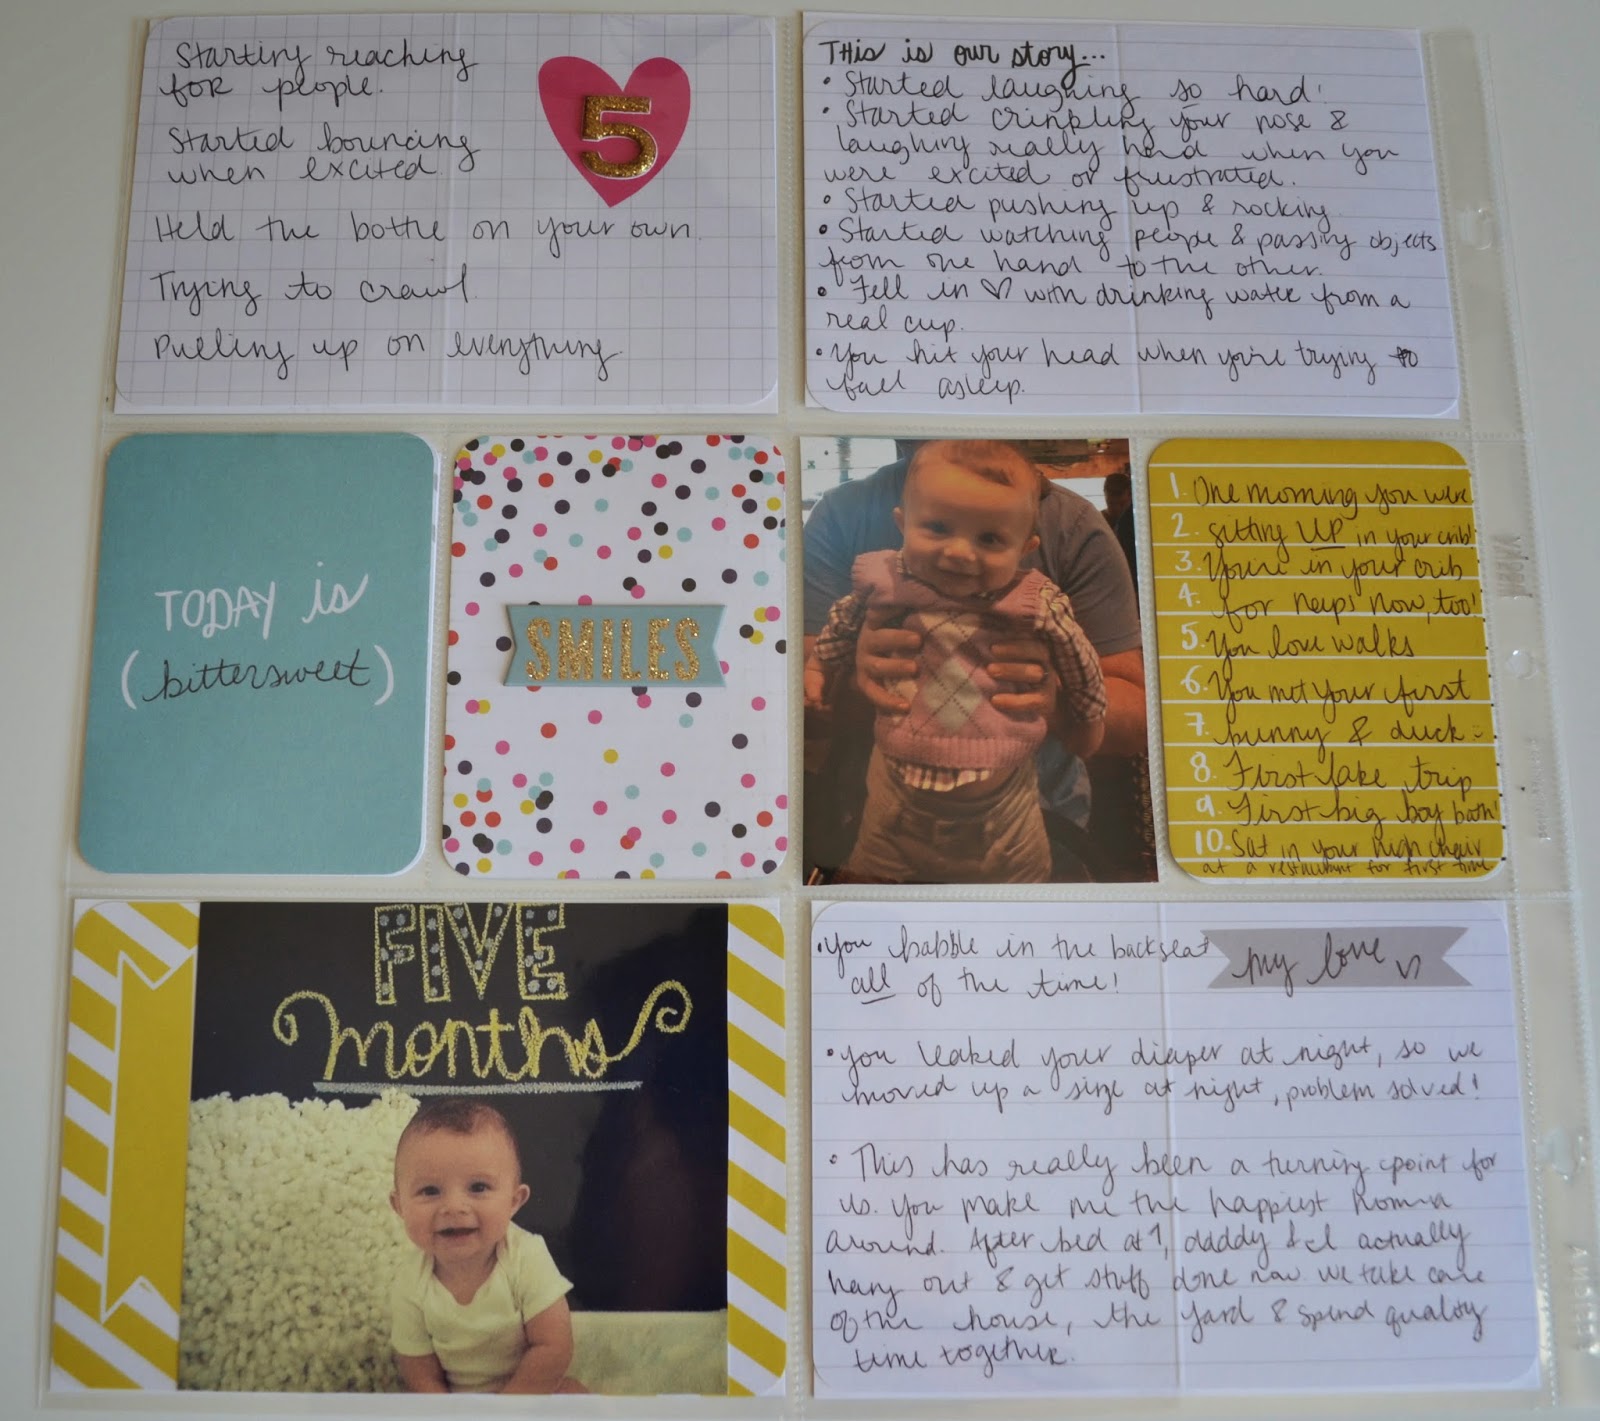 Starting reaching
for people.
5
Started bouncing
when excited.
Held the bottle on your own.
Trying to crawl.
Pulling up on everything.
THis is our story...
• Started laughing so hard!
• Started crinkling your nose &
laughing really hard when you
were excited or frustrated.
• Started pushing up & rocking.
• Started watching people & passing objects
from one hand to the other.
• Fell in ♡ with drinking water from a
real cup.
• You hit your head when you're trying to
fall asleep.
TODAY is
(bittersweet)
SMILES
1. One morning you were
2. sitting UP in your crib!
3. You're in your crib
4. for naps now, too!
5. You love walks
6. You met your first
7. bunny & duck :)
8. First lake trip
9. First big boy bath!
10. Sat in your high chair
at a restaurant for first time
FIVE
months
• You babble in the backseat
all of the time!
my love ♡
• You leaked your diaper at night, so we
moved up a size at night, problem solved!
• This has really been a turning point for
us. You make me the happiest
around. After bed at 7, daddy & I actually
hang out & get stuff done now. We take care
of the house, the yard & spend quality
time together.